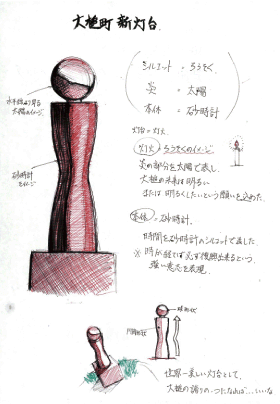 大槌町 新灯台
シルエット = ろうそく
炎 = 太陽
本体 = 砂時計
水平線より昇る
太陽のイメージ
砂時計
イメージ
灯台 = 灯火
灯火 ろうそくのイメージ
炎の部分を太陽で表し
大槌の未来は明るい
または明るくしたいという願いを込めた。
本体 = 砂時計
時間を砂時計のシルエットで表した
※ 時が経てば必ず復興出来るという、
強い意志を表現。
球形状
円筒形状
世界一美しい灯台として、
大槌の誇りの一つになれば…いいな